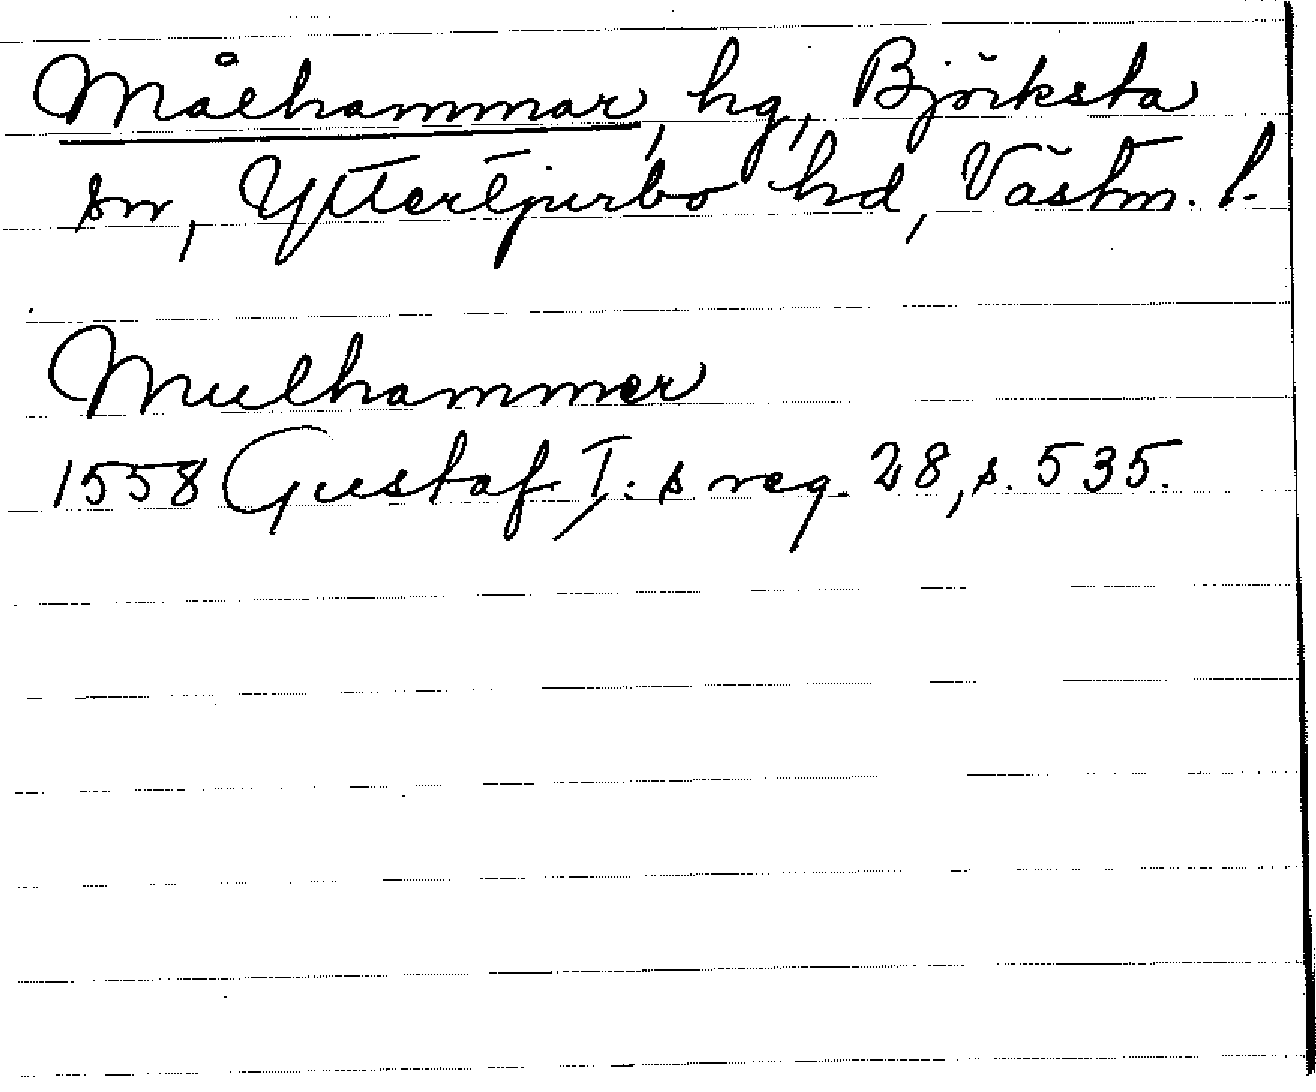 Målhammar, hg, Björksta
sn, Yttertjurbo hd, Västm. l.
Mulhammer
1558 Gustaf I:s reg. 28, s. 535.